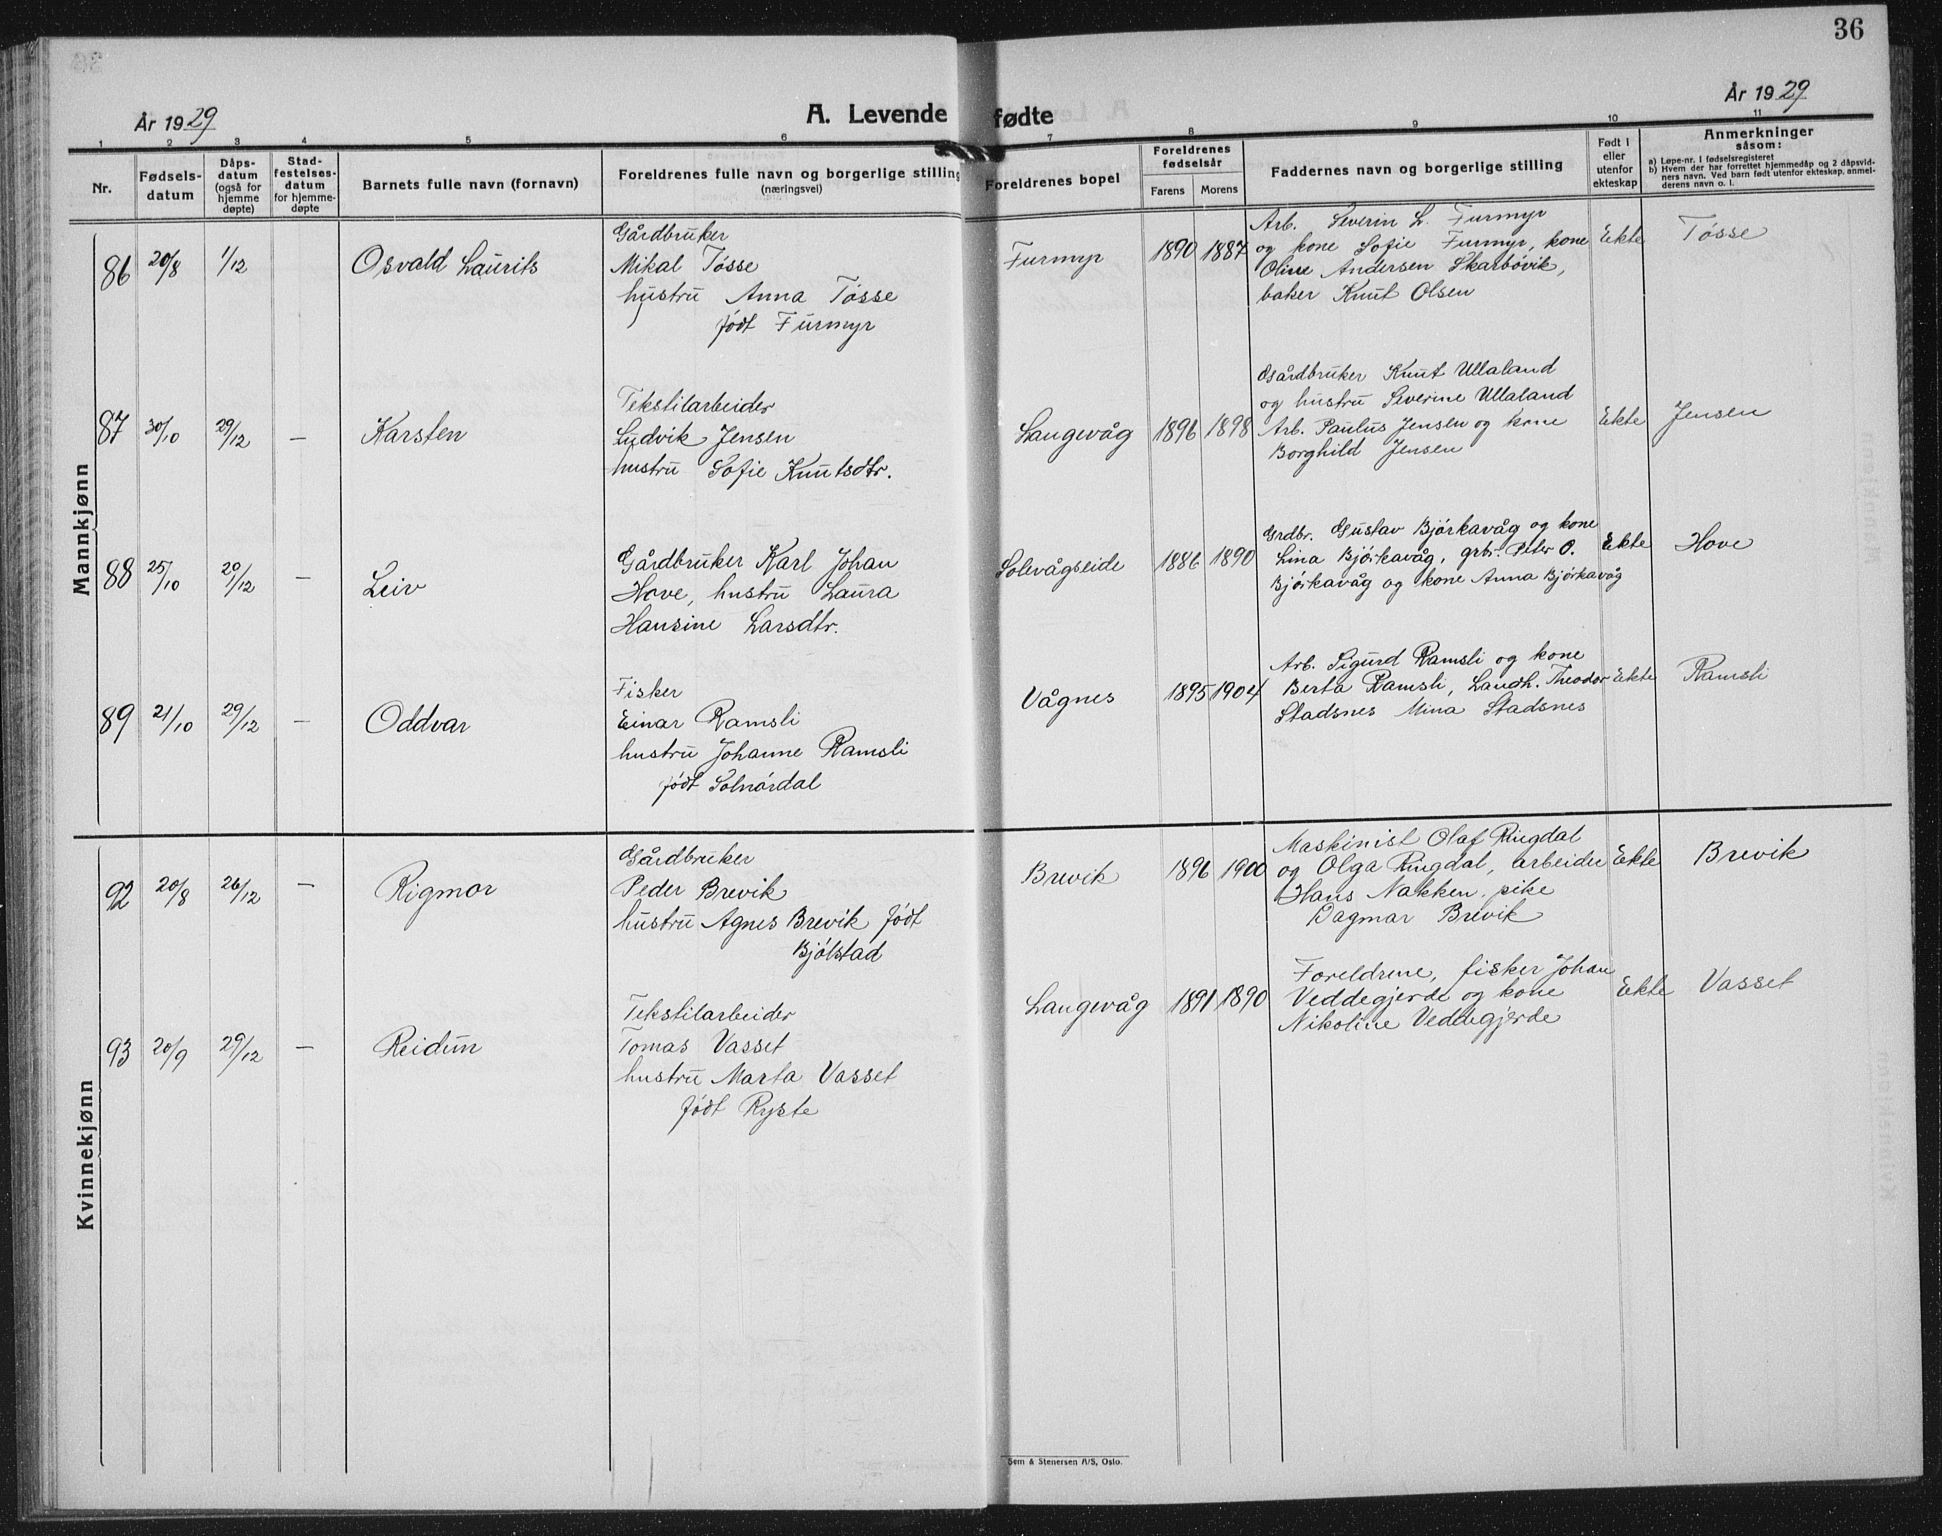 36
År 1929
A. Levende fødte
År 1929
1 2 3 4 5 6 7 8 9 10 11
Nr.
Fødsels-
datum
Dåps-
datum
(også for
hjemme
døpte)
Stad-
festelses-
datum
for hjemme-
døpte
Barnets fulle navn (fornavn)
Foreldrenes fulle navn og borgerlige stilling
(næringsvei)
Foreldrenes bopel
Foreldrenes
fødselsår
Farens Morens
Faddernes navn og borgerlige stilling
Født i
eller
utenfor
ekteskap
Anmerkninger
såsom:
a) Løpe-nr. i fødselsregisteret
b) Hvem der har forrettet hjemmedåp og 2 dåpsvid-
ners navn. Ved barn født utenfor ekteskap, anmel-
derens navn o. l.
Mannkjønn
86 20/8 1/12 Osvald Laurits
Gårdbruker
Mikal Tösse
hustru Anna Tösse
født Furmyr
Furmyr 1890 1887
Arb. Severin L. Furmyr
og kone Sofie Furmyr, kone
Oline Andersen Skarbövik,
baker Knut Olsen
Ekte Tösse
87 30/10 29/12 — Karsten
Tekstilarbeider
Ludvik Jensen
hustru Sofie Knutsdtr.
Langevåg 1896 1898
Gårdbruker Knut Ullaland
og hustru Severine Ullaland
Arb. Paulus Jensen og kone
Borghild Jensen
Ekte Jensen
88 25/10 20/12 — Leiv
Gårdbruker Karl Johan
Hove, hustru Laura
Hansine Larsdtr.
Solevågseide 1886 1890
Grdbr. Gustav Björkavåg og kone
Lina Björkavåg, grbr. Peter O.
Björkavåg og kone Anna Björkavåg
Ekte Hove
89 21/10 29/12 — Oddvar
Fisker
Einar Ramsli
hustru Johanne Ramsli
født Solnördal
Vågnes 1895 1904
Arb. Sigurd Ramsli og kone
Berta Ramsli, Landh. Theodor
Stadsnes Mina Stadsnes
Ekte Ramsli
Kvinnekjønn
92 20/8 26/12 — Rigmor
Gårdbruker
Peder Brevik
hustru Agnes Brevik født
Bjölstad
Brevik 1896 1900
Maskinist Olaf Ringdal
og Olga Ringdal, arbeider
Hans Nakken, pike
Dagmar Brevik
Ekte Brevik
93 20/9 29/12 — Reidun
Tekstilarbeider
Tomas Vasset
hustru Marta Vasset
født Ryste
Langevåg 1891 1890
Foreldrene, fisker Johan
Veddegjerde og kone
Nikoline Veddegjerde
Ekte Vasset
Sem & Stenersen A/S, Oslo.